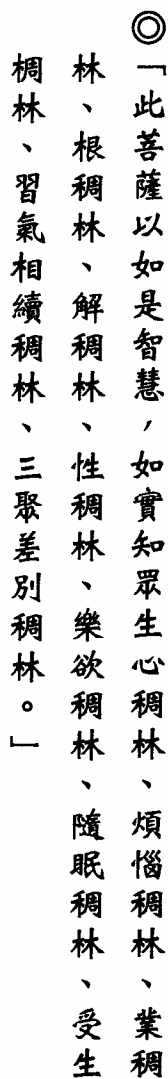 ◎「此菩薩以如是智慧，如實知眾生心稠林、煩惱稠林、業稠
林、根稠林、解稠林、性稠林、樂欲稠林、隨眠稠林、受生
稠林、習氣相續稠林、三聚差別稠林。」